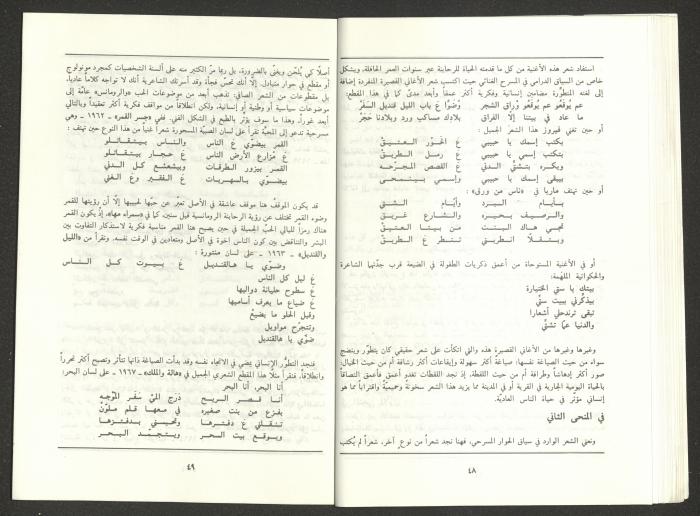 استفاد شعر هذه الأغنية من كل ما قدمته الحياة للرحابنة عبر سنوات العمر الحافلة، وبشكل
خاص من السياق الدرامي في المسرح الغنائي حيث اكتسب شعر الأغاني القصيرة المنفردة إضافة
إلى لغته المتطوّرة مضامين إنسانية وفكرية أكثر عمقاً وأبعد مدىً كما في هذا المقطع:
عم يوقعو عم يوقعو وراق الشجر
وضّوا ع باب الليل قنديل السفَر
ما عاد في بيتنا إلا الفراق
بلادك مساكب ورد وبلادنا حَجَر
أو حين تغني فيروز هذا الشعر الجميل:
بكتب إسمك يا حبيبي
ع الحَوْر العتيق
بتكتب إسمي يا حبيبي
ع رمل الطريق
وبكره بتشتّي الدني
ع القصص المجرّحه
بيبقى إسمك يا حبيبي
وإسمي بينمحى
أو حين تهتف ماريا في «ناس من ورق»:
بأيام البرد
وأيام الشتي
والرصيف بحيره
والشارع غريق
تجي هاك البنت
من بيتا العتيق
ويقلّا انطريني
تنطر ع الطريق
أو في الأغنية المستوحاة من أعمق ذكريات الطفولة في الضيعة قرب جدّتهما الشاعرة
والحكواتية الملهمة:
بيتك يا ستي الختيارة
بيذكّرني ببيت ستّي
تبقى ترندحلي أشعارا
والدنيا عمّ تشتّي
وغيرها وغيرها من الأغاني القصيرة هذه والتي اتكأت على شعر حقيقي كان يتطوّر وينضج
سواء من حيث الصياغة نفسها، صياغة أكثر سهولة وإيقاعات أكثر رشاقة أم من حيث الخيال،
صور أكثر إدهاشاً وطرافة أم من حيث اللقطة، إذ نجد اللقطات تغدو أعمق فأعمق التصاقاً
بالحياة اليومية الجارية في القرية أو في المدينة مما يزيد هذا الشعر سخونة وحميميّة واقتراباً مما هو
إنساني مؤثّر في حياة الناس العاديّة.
في المنحى الثاني
ونعني الشعر الوارد في سياق الحوار المسرحي، فهنا نجد شعراً من نوع آخر، شعراً لم يُكتب
٤٨
أصلاً كي يُلحّن ويغنّى بالضرورة، بل ربما مرّ الكثير منه على ألسنة الشخصيات كمجرد مونولوج
أو مقطع في حوار متبادل، إلا أنك تحسّ فجأة وقد أسرتك الشاعرية أنك لا تواجه كلاماً عادياً،
بل مقطوعات من الشعر الصافي، تذهب أبعد من موضوعات الحب «والرومانس» عامّة إلى
موضوعات سياسية أو وطنية أو إنسانية، ولكن انطلاقاً من مواقف فكرية أكثر تعقيداً وبالتالي
أبعد غوراً، وهذا ما سوف يؤثر بالطبع في الشكل الفني. ففي «جسر القمر» ـ ١٩٦٢ ـ وهي
مسرحية تدعو إلى المحبّة نقرأ على لسان الصبيّة المسحورة شعراً غنياً من هذا النوع حين تهتف:
القمر بيضوّي ع الناس
والناس بيتقاتلو
ع مزارع الأرض الناس
ع حجار بيتقاتلو
القمر بيزور الطرقات
وبيشعشع كل الدني
بيضوّي بالسهريات
ع الفقير وع الغني
قد يكون الموقف هنا موقف عاشقة في الأصل تعبّر عن حبّها لحبيبها إلا أن رؤيتها للقمر
وضوء القمر تختلف عن رؤية الرحابنة الرومانسية قبل سنتين، كما في «سمراء مها»، إذ يكون القمر
هناك رمزاً لليالي الحبّ الجميلة في حين يصبح هنا القمر مناسبة فكرية لاستذكار التفاوت بين
البشر والتناقض بين كون الناس إخوة في الأصل ومتعادين في الوقت نفسه. ونقرأ من «الليل
والقنديل» ـ ١٩٦٣ ـ على لسان منتورة:
وضوّي يا هالقنديل
ع بيوت كل الناس
ع ليل كل الناس
ع سطوح حليانة دواليها
ع ضياع ما يعرف أساميها
وقبل الحلو ما يضيّع
وتنجرح مواويل
ضوّي يا هالقنديل
فنجد التطوّر الإنساني يمضي في الاتجاه نفسه وقد بدأت الصياغة ذاتها تتأثر وتصبح أكثر تحرراً
وانطلاقاً، فنقرأ مثلاً هذا المقطع الشعري الجميل في «هالة والملك» ـ ١٩٦٧ ـ على لسان البحر:
أنا البحر، أنا البحر
أنا قصر الريح
درج المَيّ سَفر الموجه
بفزع من بنت صغيره
في معها قلم ملوّن
تنقلني ع دفترها
وتحبسني بدفترها
ويوقع بيت البحر
ويتجمّد البحر
٤٩